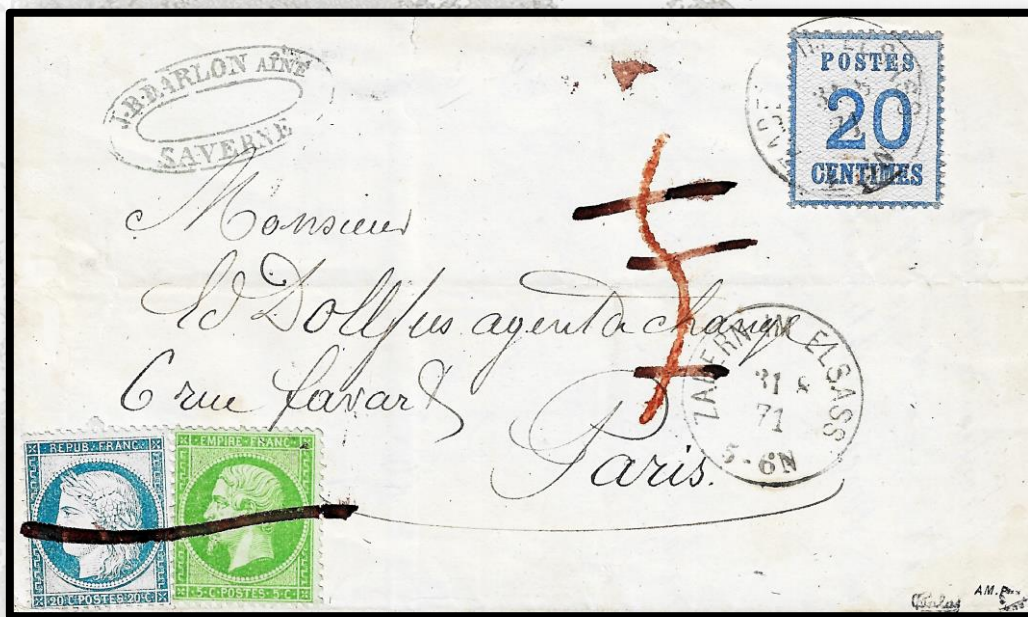 J.B. BARLON AÎNÉ
SAVERNE
POSTES
20
CENTIMES
Monsieur
Ed Dollfus agent de change
6 rue favart
Paris.
ZABERN IM ELSASS
31 8
71
5-6N
REPUB. FRANC.
20 C. POSTES 20 C.
EMPIRE FRANC.
5 C. POSTES 5 C.